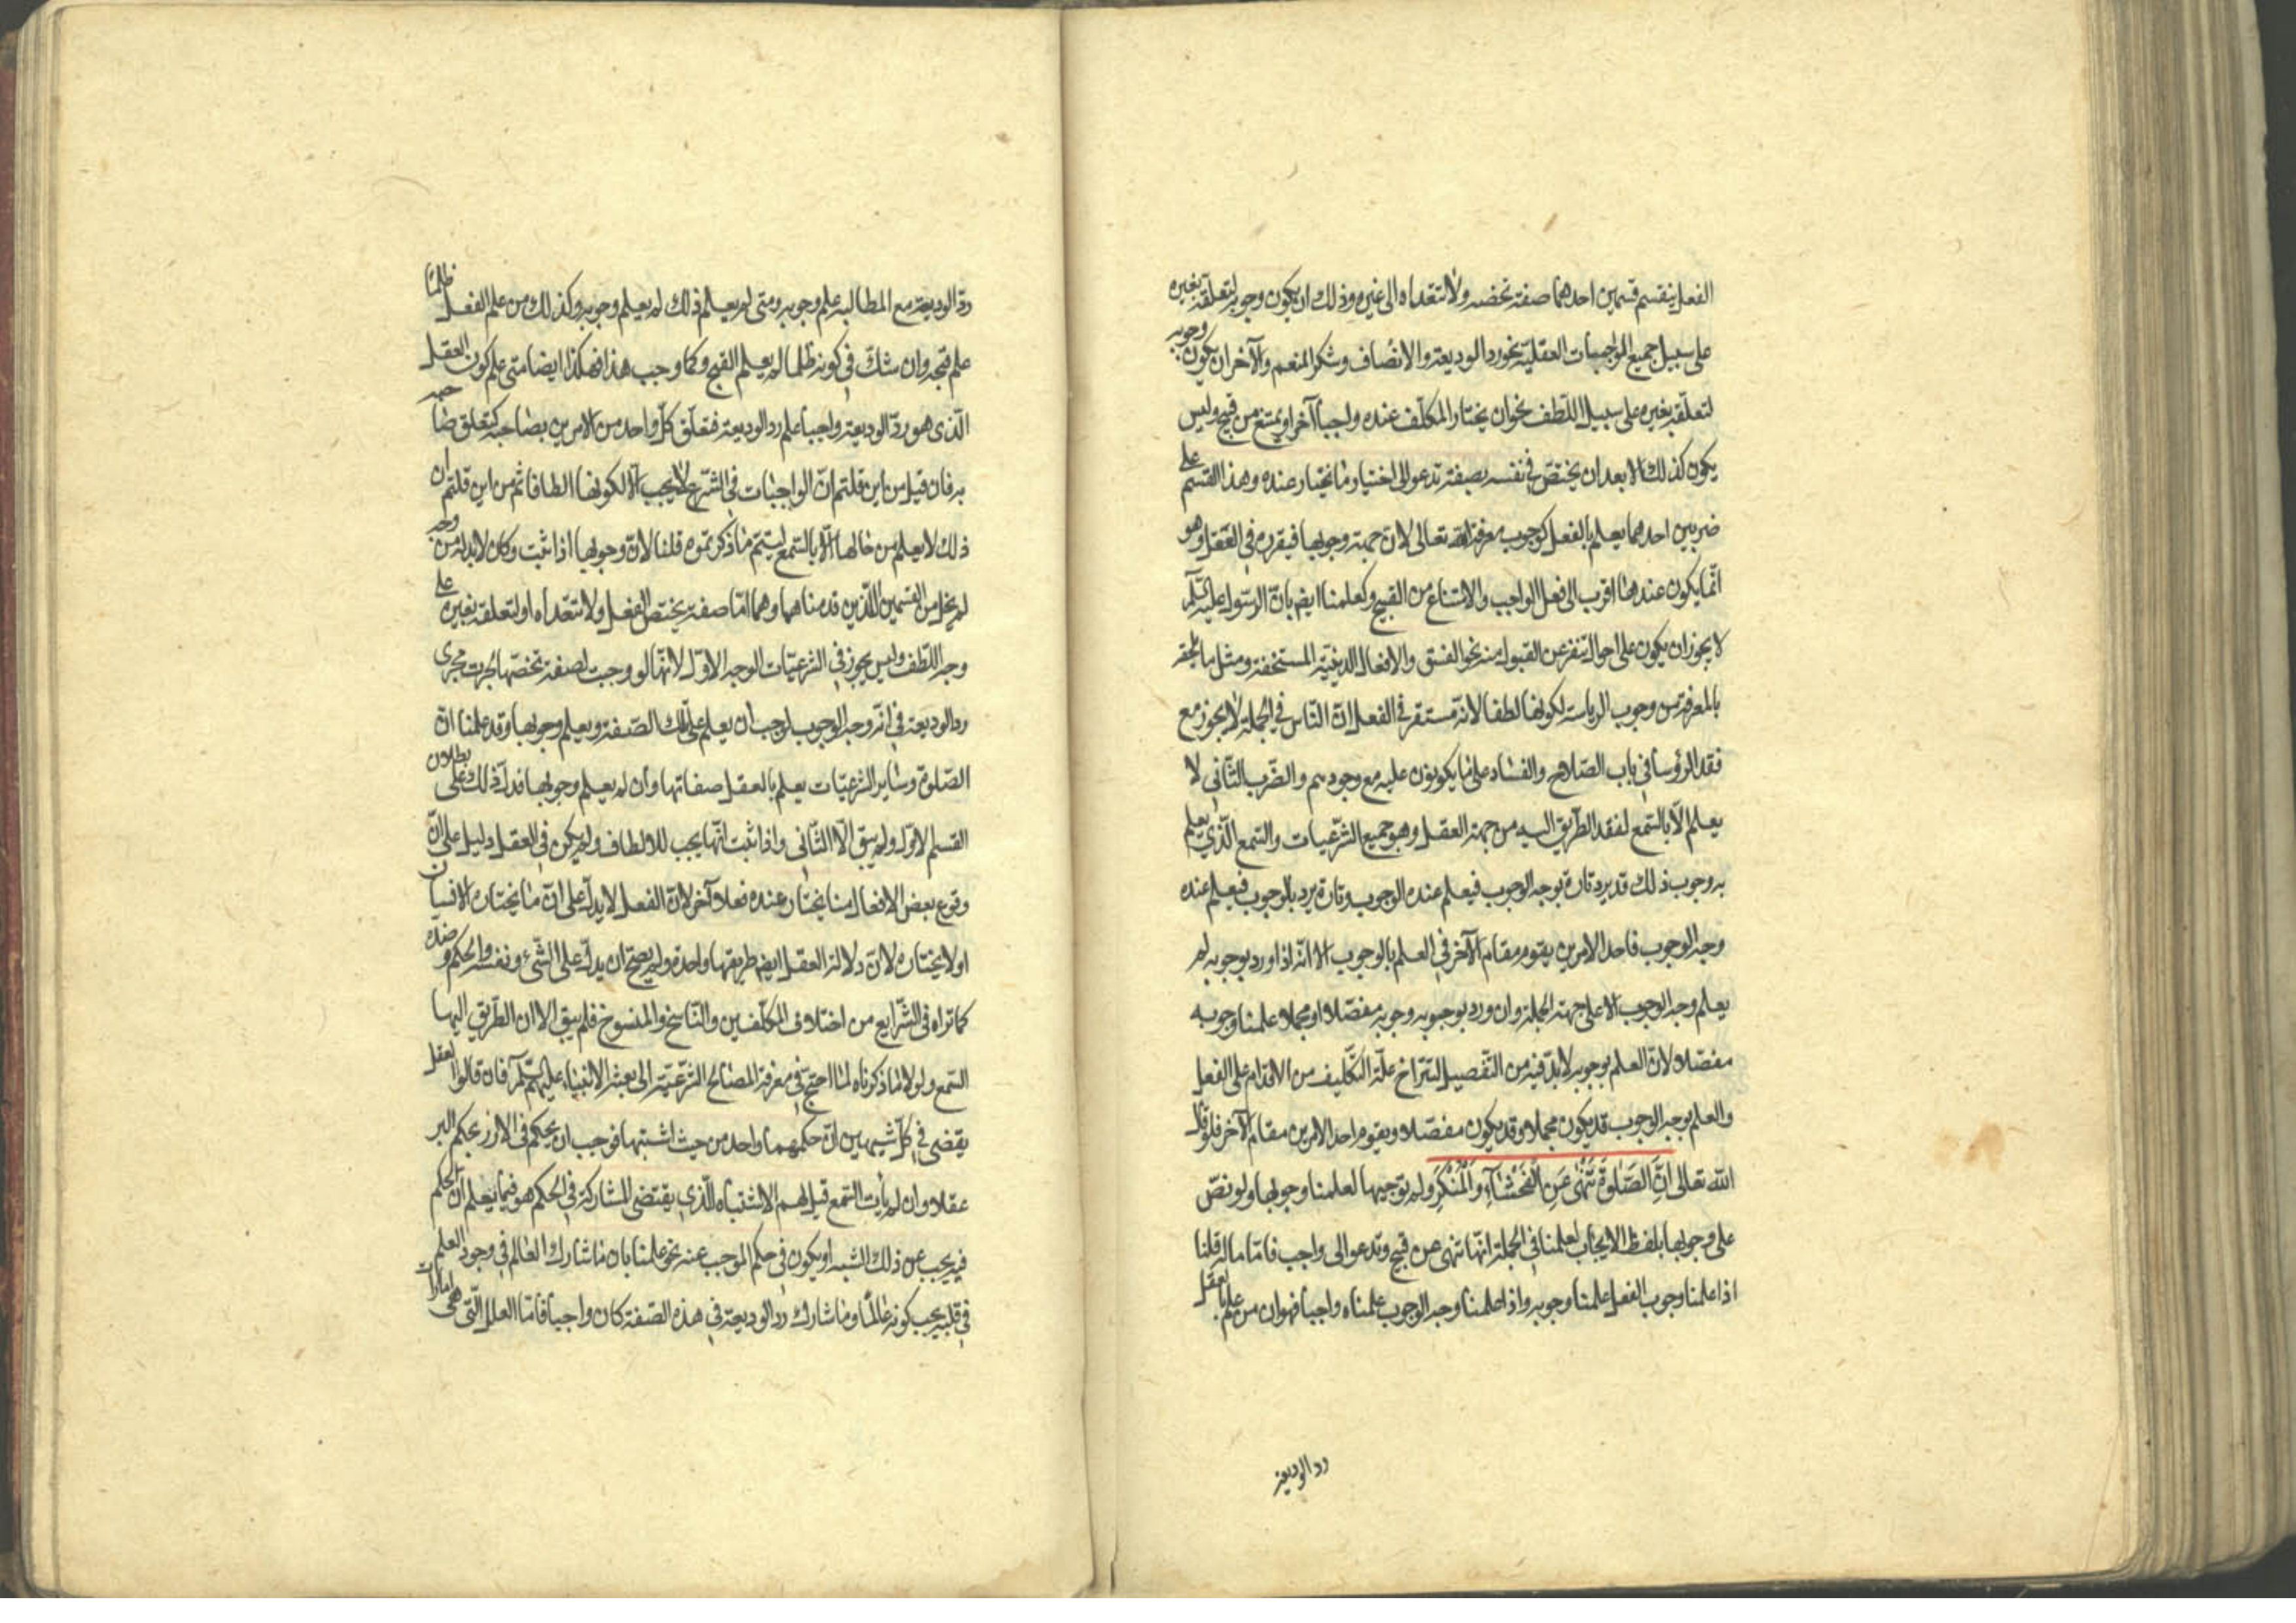 الفعل ينقسم قسمين احدهما صفة تخصه ولا تتعداه الى غيره وذلك ان يكون وجوبه لتعلقه بغيره
على سبيل جميع الواجبات العقلية نحو رد الوديعة والانصاف وشكر المنعم والآخر ان يكون وجوبه
لتعلقه بغيره على سبيل اللطف نحو ان يختار المكلف عنده واجباً آخر او يمتنع من قبيح وليس
يكون كذلك الا بعد ان يختص في نفسه بصفة تدعو الى اختيار ما يختار عنده وهذا القسم على
ضربين احدهما يعلم بالفعل كوجوب معرفة الله تعالى لان جهة وجوبها فيقرره في العقل وهو
انّما يكون عندهنا اقرب الى فعل الواجب والامتناع من القبيح وكعلمنا ايضا بان الرسول عليه السّلام
لا يجوز ان يكون على احوال تنفر عن القبول منه نحو الفسق والافعال الدنيّة المستخفة ومثل ما يلحقه
بالمعرفة من وجوب الرياسة لكونها لطفا لانه مستقر في الفعل انّ النّاس في الجملة لا يجوز مع
فقد الرؤسا في باب الصّلاح والفساد على ما يكونون عليه مع وجودهم والضّرب الثّاني لا
يعلم الّا بالسّمع لفقد الطّريق اليه من جهة العقل وهو جميع الشّرعيات والسّمع الّذي يعلم
به وجوب ذلك قد يرد تارة بوجه الوجوب فيعلم عنده الوجوب وتارة يرد بالوجوب فيعلم عنده
وجه الوجوب فاحد الامرين يقوم مقام الآخر في العلم بالوجوب الا انّه اذا ورد بوجوبه لم
يعلم وجه الوجوب الا على جهة الجملة وان ورد بوجوبه وجوبه مفصّلا او مجملا علمنا وجوبه
مفصّلا لانّ العلم بوجوبه لابدّ فيه من التّفصيل لتتراخ علّة التّكليف من الاقدام على الفعل
والعلم بوجه الوجوب قد يكون مجملا وقد يكون مفصّلا ويقوم احد الامرين مقام الآخر فلو قال
الله تعالى انّ الصّلوة تنهى عن الفحشاء والمنكر ولم يوجبها لعلمنا وجوبها ولو نصّ
على وجوبها بلفظ الايجاب لعلمنا في الجملة انّها تنهى عن قبيح وتدعو الى واجب فامّا ما له قلنا
اذا علمنا وجوب الفعل علمنا وجوبه واذا علمنا وجه الوجوب علمناه واجبا فهو ان من علم بالعقل
رد الوديعة
ردّ الوديعة مع المطالبة علم وجوبه ومتى لم يعلم ذلك لم يعلم وجوبه وكذلك من علم الفعل ظلماً
علم قبحه وان شكّ في كونه ظلما لم يعلم القبح وكما وجب هذا فهكذا ايضا متى علم كون العقل
الّذي هو ردّ الوديعة واجباً علم رد الوديعة فتعلّق كلّ واحد من الامرين بصاحبه كتعلق صاحبه
به فان قيل من اين قلتم انّ الواجبات في الشّرع لا يجب الّا لكونها الطافا ثم من اين قلتم ان
ذلك لا يعلم من حالها الّا بالسّمع ليتمّ ما ذكرتموه قلنا لانّ وجوبها اذا ثبت وكان لابد له من وجه
لم يخل من القسمين اللّذين قدمناهما وهما امّا صفة يختصّ الفعل ولا تتعدّاه او لتعلقه بغيره على
وجه اللّطف وليس يجوز في الشرعيّات الوجه الاوّل لانّها لو وجبت لصفة تخصّها لجرت مجرى
رد الوديعة في انّه وجه الوجوب لوجب ان يعلم على تلك الصّفة ويعلم وجوبها وقد علمنا انّ
الصّلوة وساير الشرعيّات يعلم بالعقل صفاتها وان لم يعلم وجوبها فدلّ ذلك على بطلان
القسم الاوّل ولم يبق الّا الثّاني واذا ثبت انّها يجب للالطاف ولم يكن في العقل دليل على انّ
وقوع بعض الافعال منا يختار عنده فعلا آخر لانّ الفعل لا يدلّ على انّ ما يختاره الانسان
او لا يختاره لانّ دلالة العقل ايضا طريقها واحدة ولم يصحّ ان يدلّ على الشّيء ونفسه والحكم وضدّه
كما تراه في الشّرايع من اختلاف المكلّفين والنّاسخ والمنسوخ فلم يبق الا ان الطّريق اليها
السّمع ولو لا ما ذكرناه لما احتج في معرفة المصالح الشّرعيّة الى بعثة الانبياء عليهم السّلم فان قالوا العقل
يقضي في كلّ شيئين انّ حكمهما واحد من حيث اشتبها فوجب ان يحكم في الارز بحكم البر
عقلا وان لم يأت السّمع قيل لهم الاشتباه الّذي يقتضي المشاركة في الحكم هو فيما يعلم انّ الحكم
فيه يجب عن ذلك الشّبه او يكون في حكم الموجب عنه نحو علمنا بان ما شارك العالم في وجود العلم
في قلبه يجب كونه عالماً وما شارك ردّ الوديعة في هذه الصّفة كان واجبا فامّا العلل الّتي هي امارات